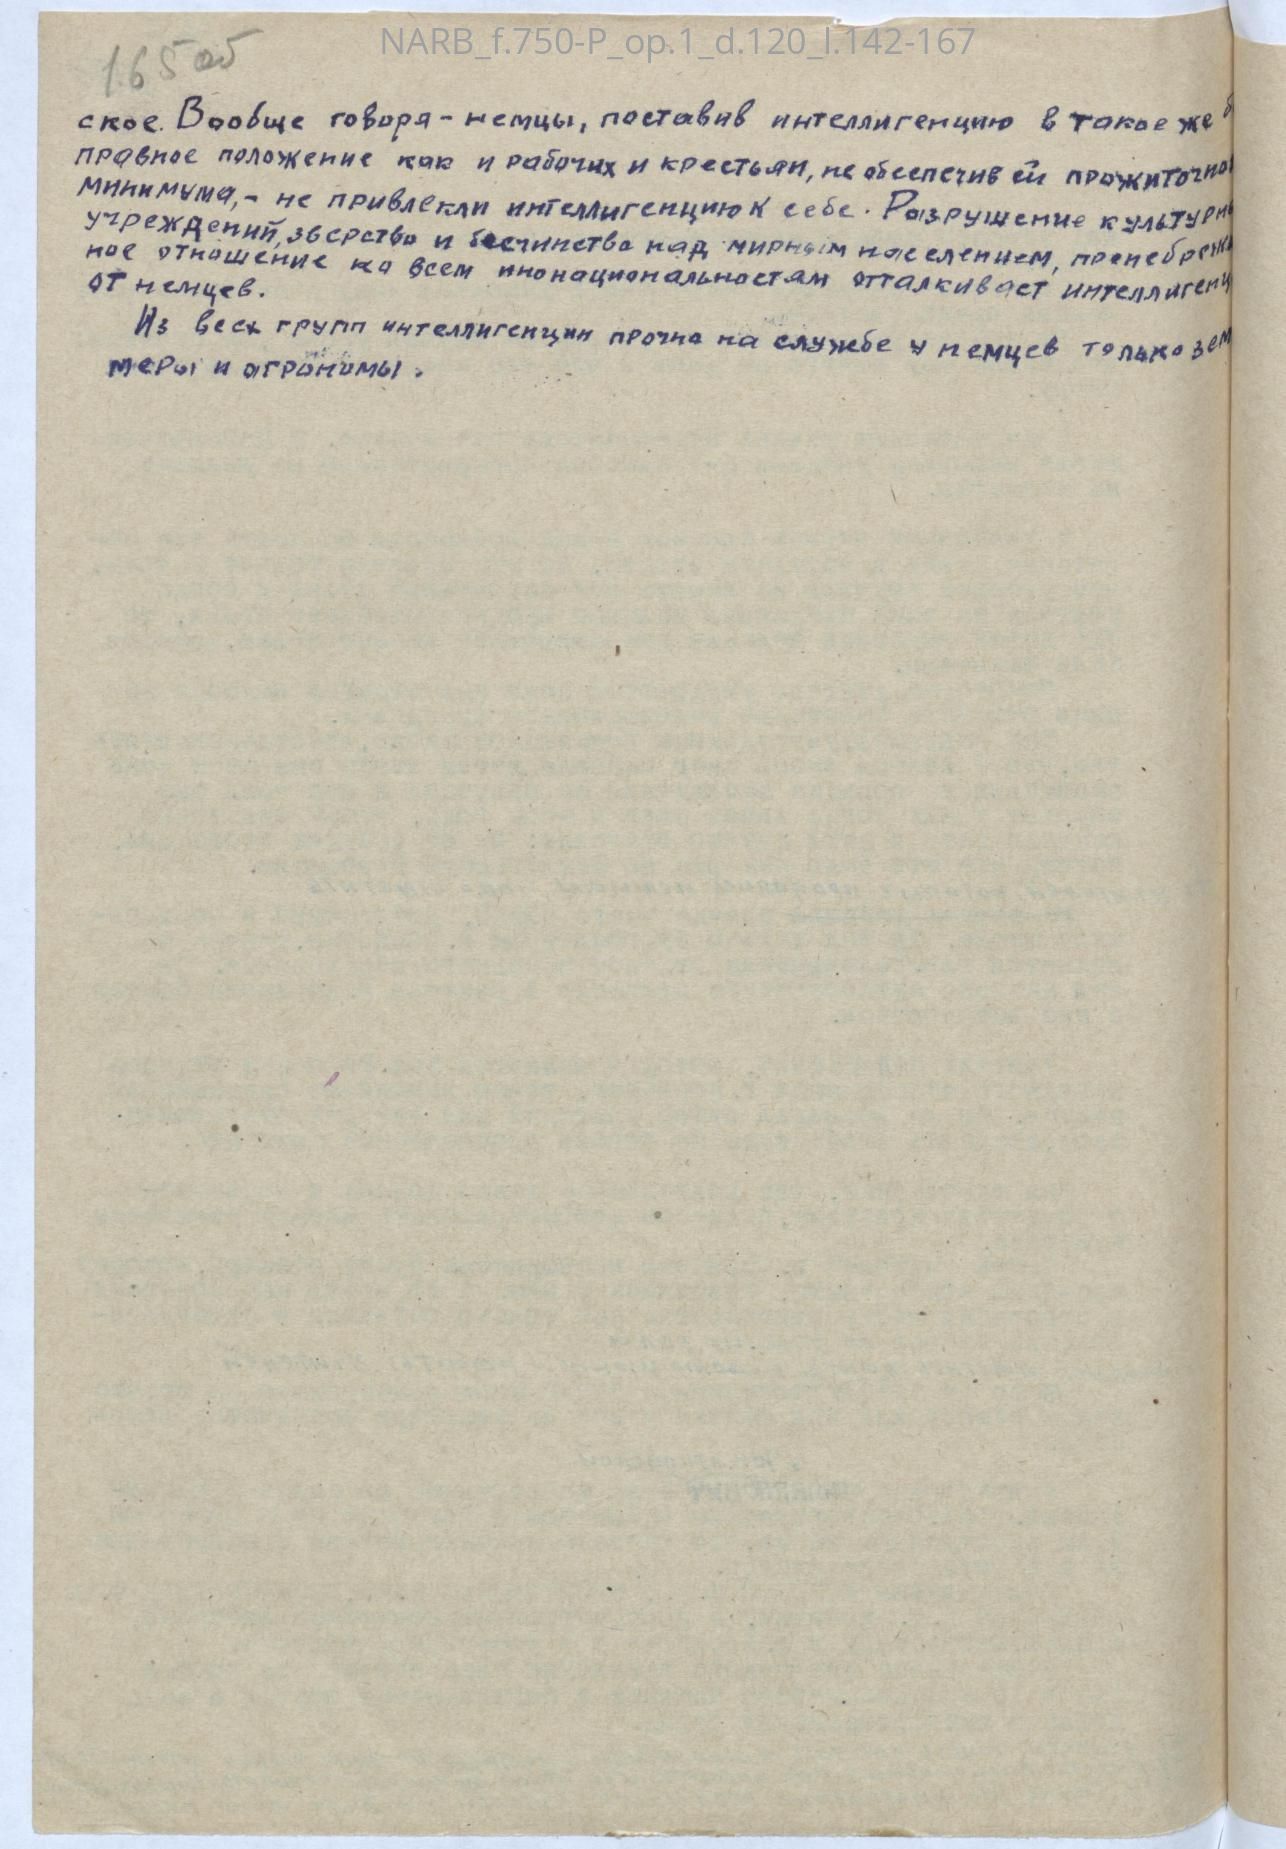 NARB_f.750-P_op.1_d.120_l.142-167
165 об
ское. Вообще говоря - немцы, поставив интеллигенцию в такое же б
правное положение как и рабочих и крестьян, не обеспечив ей прожиточно
минимума, - не привлекли интеллигенцию к себе. Разрушение культурн
учреждений, зверства и бесчинства над мирным населением, пренебрежи
ное отношение ко всем инонациональностям отталкивает интеллигенц
от немцев.
Из всех групп интеллигенции прочно на службе у немцев только зем
меры и агрономы.